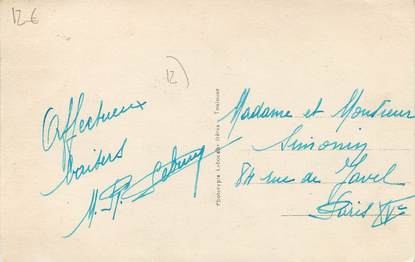 12 €
12
Affectueux
baisers
M. R.
Phototypie Labouche frères - Toulouse
Madame et Monsieur
Simonin
84 rue de Javel
Paris XVe